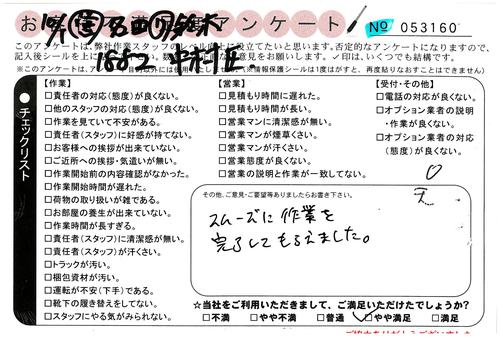 アンケート
No 053160
このアンケートは、弊社作業スタッフのレベル向上に役立てたいと思います。否定的なアンケートになりますので、
※このアンケートは、
(※情報保護シールは1度はがすと、再度貼りなおすことはできません)
チェックリスト
【作業】
□責任者の対応(態度)が良くない。
□他のスタッフの対応(態度)が良くない。
□作業を見ていて不安がある。
□責任者(スタッフ)に好感が持てない。
□お客様への挨拶が出来ていない。
□ご近所への挨拶・気遣いが無い。
□作業開始前の内容確認がなかった。
□作業開始時間が遅れた。
□荷物の取り扱いが雑である。
□お部屋の養生が出来ていない。
□作業時間が長すぎる。
□責任者(スタッフ)に清潔感が無い。
□責任者(スタッフ)が汗くさい。
□トラックが汚い。
□梱包資材が汚い。
□運転が不安(下手)である。
□靴下の履き替えをしてない。
□スタッフにやる気がみられない。
【営業】
□見積もり時間に遅れた。
□見積もり時間が長い。
□営業マンに清潔感が無い。
□営業マンが煙草くさい。
□営業マンが汗くさい。
□営業態度が良くない。
□営業の説明と作業が一致してない。
【受付・その他】
□電話の対応が良くない。
□オプション業者の説明
・作業が良くない。
□オプション業者の対応
(態度)が良くない。
その他、ご意見・ご要望等ありましたらお書き下さい。
スムーズに作業を
完了してもらえました。
☆当社をご利用いただきまして、ご満足いただけたでしょうか?
□不満 □やや不満 □普通 □やや満足 □満足